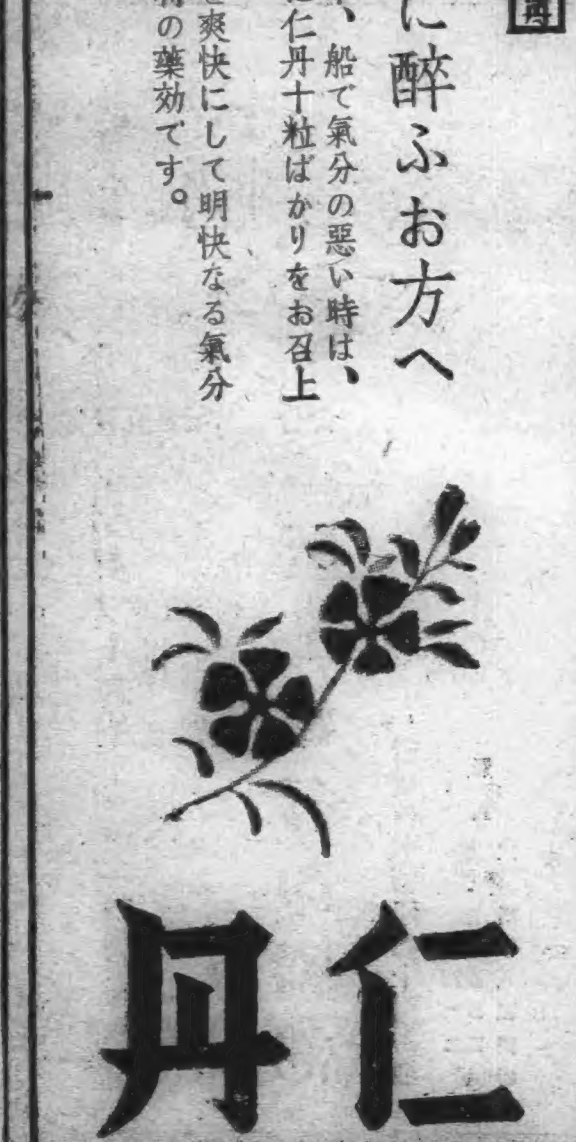 に醉ふお方へ
、船で氣分の惡い時は、
仁丹十粒ばかりをお召上
爽快にして明快なる氣分
の藥効です。
仁丹